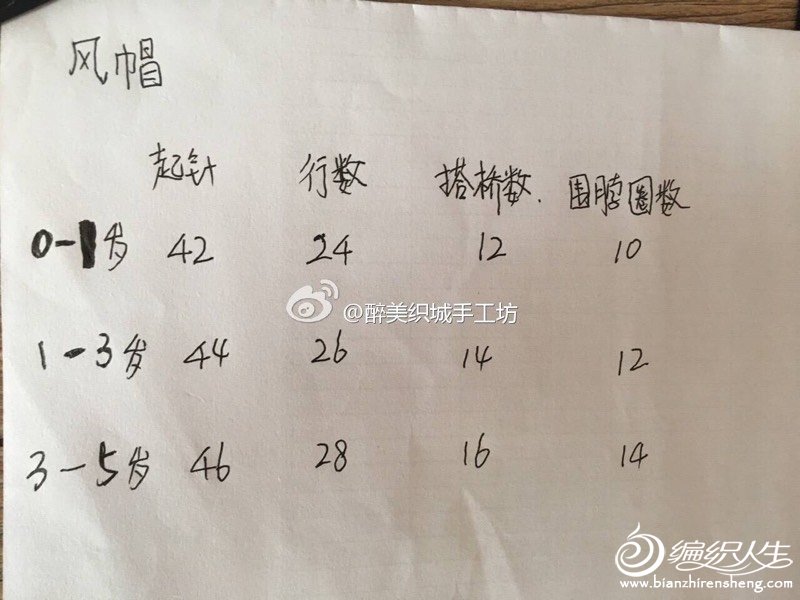 风帽
起针 行数 搭桥数. 围脖圈数
0-1岁 42 24 12 10
@醉美织城手工坊
1-3岁 44 26 14 12
3-5岁 46 28 16 14
编织人生
www.bianzhirensheng.com